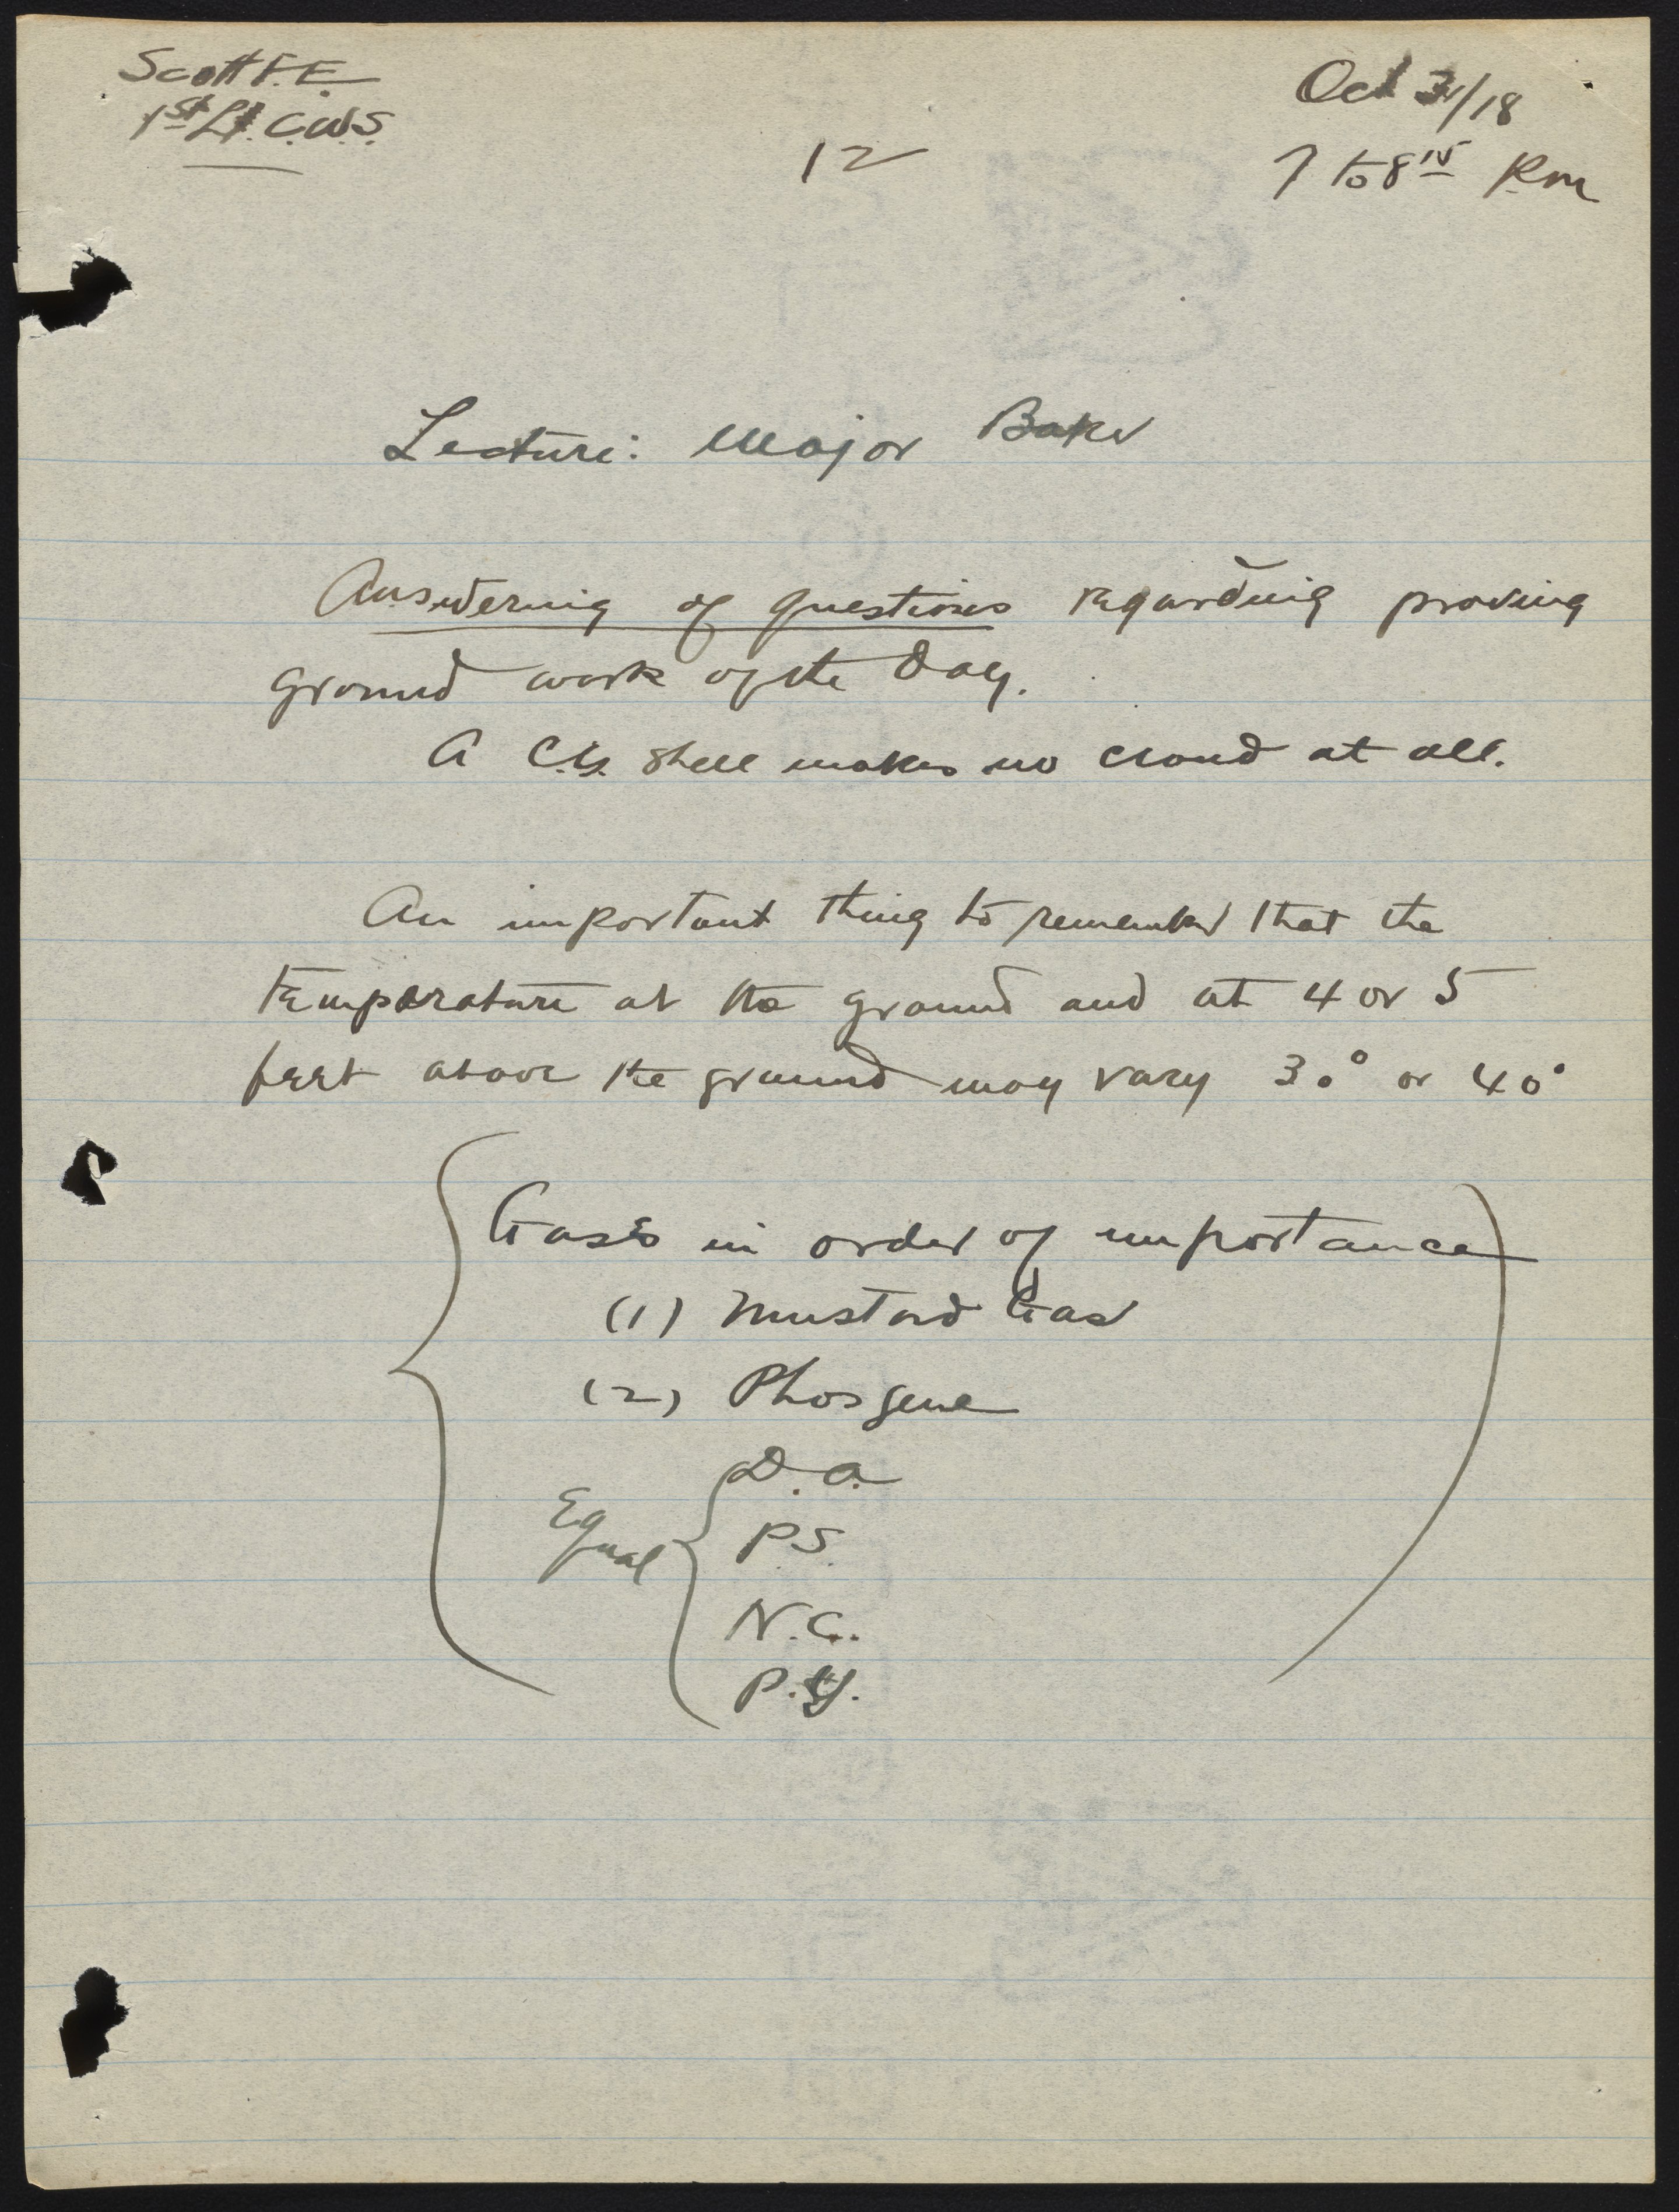 Scott F. E.
1st Lt. C.W.S.
12
Oct 31/18
7 to 8 15 P.m
Lecture: Major Baker
Answering of questions regarding proving
ground work of the day.
A C.G. shell makes no cloud at all.
An important thing to remember that the
temperature at the ground and at 4 or 5
feet above the ground may vary 30° or 40°
Gases in order of importance
(1) Mustard Gas
(2) Phosgene
Equal
D.A.
P.S.
N.C.
P.G.